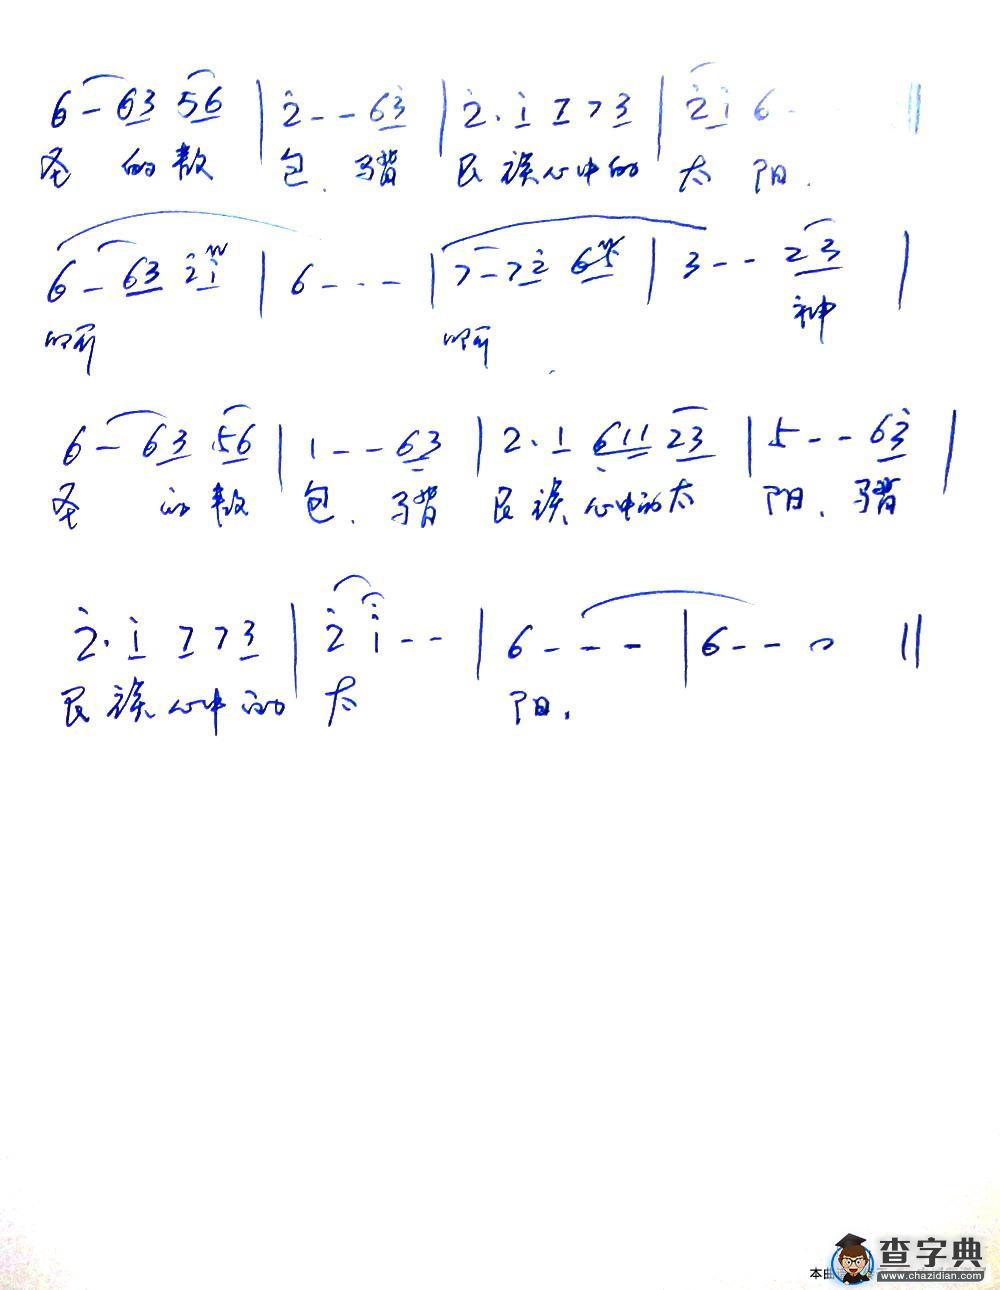 6 - 63 56 | 2̇ - - 63̇ | 2̇. 1̇ 7 7 3 | 2̇1̇ 6 - ‖
圣 的敖 包. 马背 民族心中的 太 阳.
6 - 63 2̇1̇ | 6 - - - | 7 - 72̇ 6 | 3 - - 23 |
啊 啊 神
6 - 63 56 | 1 - - 63 | 2. 1 611 23 | 5 - - 63̇ |
圣 的敖 包. 马背 民族心中的太 阳. 马背
2̇. 1̇ 7 7 3 | 2̇ 1̇ - - | 6 - - - | 6 - - 0 ‖
民族心中的 太 阳.
本曲
查字典
www.chazidian.com